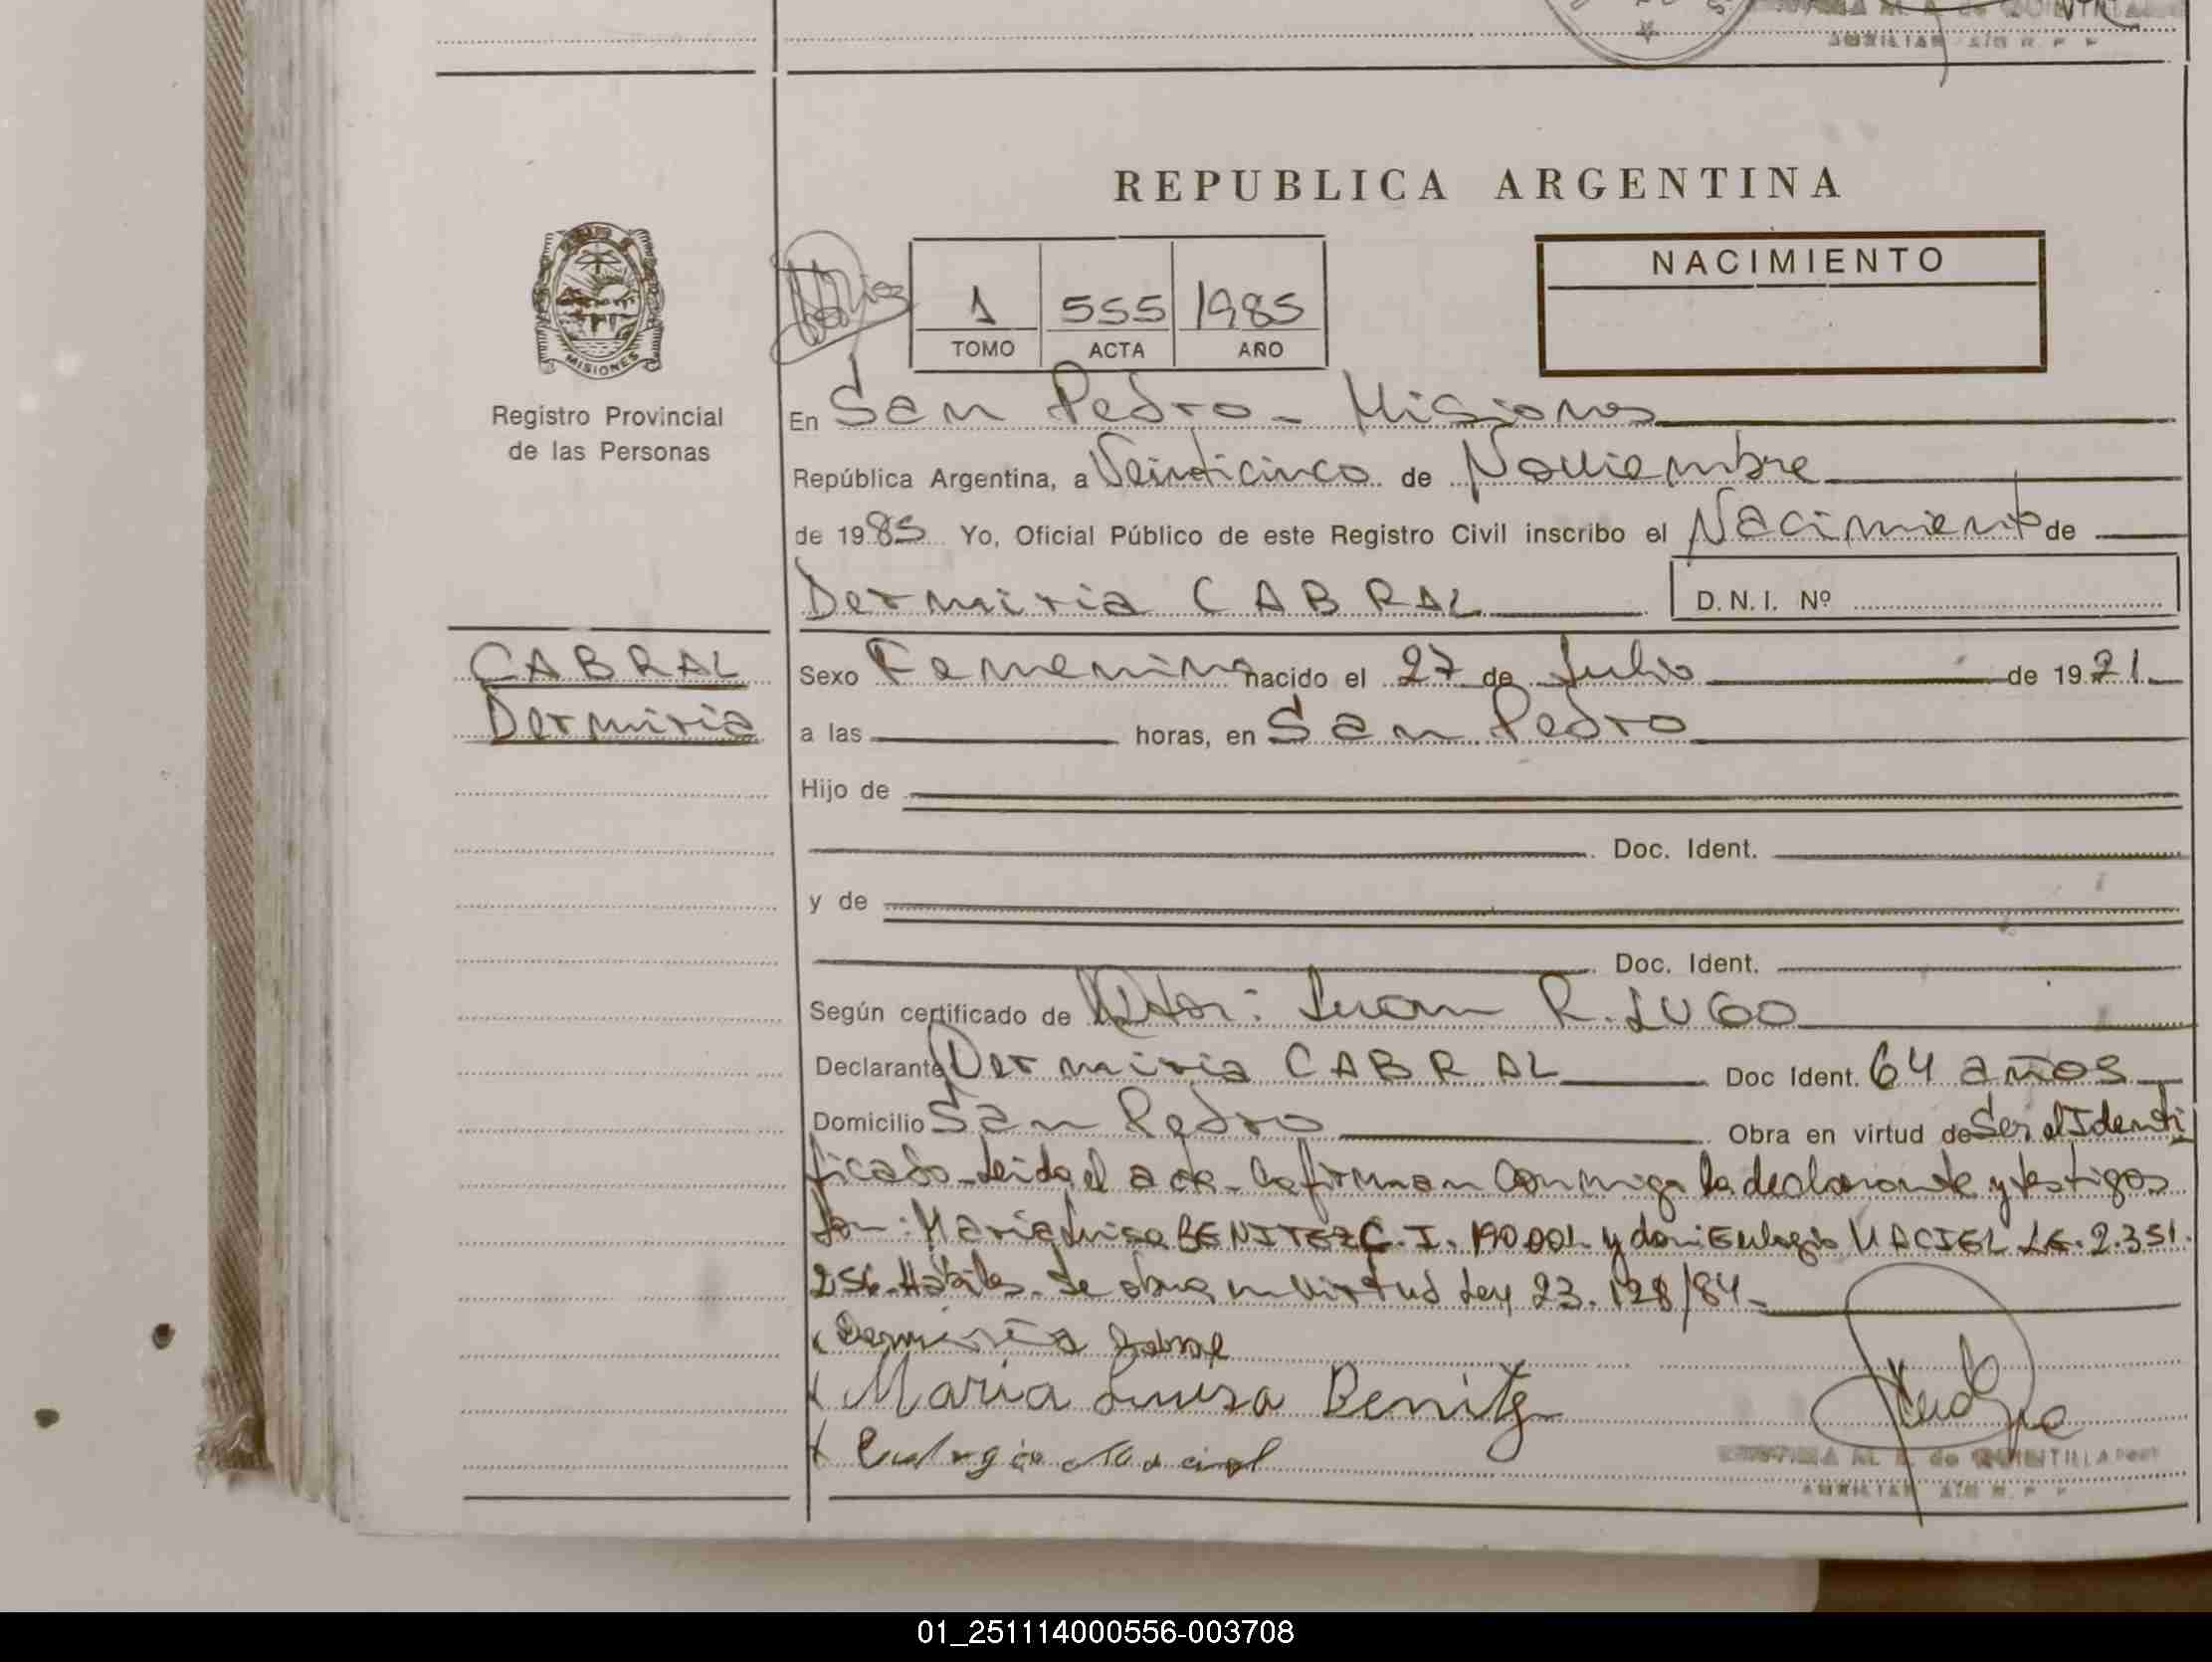 AUXILIAR
REPUBLICA ARGENTINA
MISIONES
Registro Provincial
de las Personas
1 555 1985
TOMO ACTA AÑO
NACIMIENTO
En San Pedro - Misiones
República Argentina, a Veinticinco de Noviembre
de 1985 Yo, Oficial Público de este Registro Civil inscribo el Nacimiento de
Dermiria CABRAL D.N.I. Nº
CABRAL
Dermiria
Sexo Femenino nacido el 27 de Julio de 1921
a las horas, en San Pedro
Hijo de
Doc. Ident.
y de
Doc. Ident.
Según certificado de Juan R. LUGO
Declarante Dermiria CABRAL Doc Ident. 64 años
Domicilio San Pedro Obra en virtud de Ser el Identi
ficado. Leida el acta. La firman conmigo la declarante y testigos
Son: Maria Luisa BENITEZ C.I. 190.001 y don: Eulogio MACIEL L.E. 2.351.
256. Hábiles. Se obra en virtud Ley 23.128/84
Dermiria Cabral
Maria Luisa Benitez
Eulogio Maciel
de QUINTILLA
AUXILIAR
01_251114000556-003708